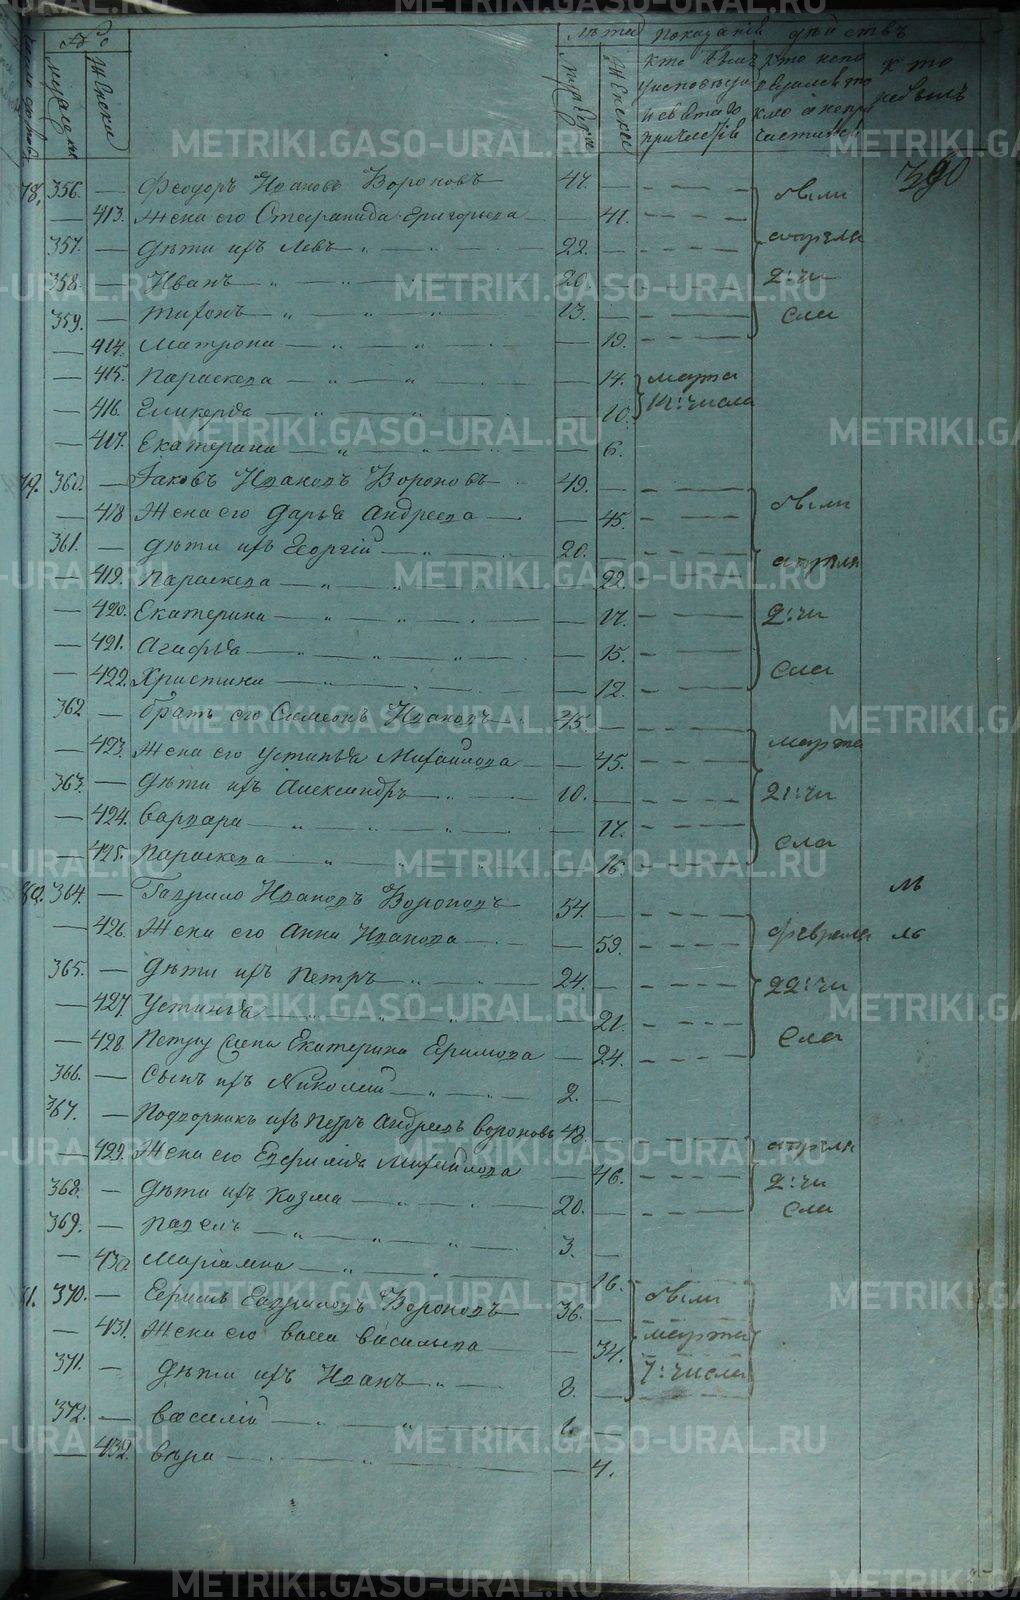 Лѣта показаніе дѣйствъ
мужеска женска мужеска женска
Кто былъ у исповѣди и святаго причастія
Кто исповѣдался токмо а не причастился
кто не былъ
390
78. 356. — Феодоръ Ивановъ Вороновъ 47. были
— 413. Жена его Стефанида Григорьева — 41.
357. — Дѣти ихъ Левъ 22. апрѣля
358. — Иванъ 20. 2: чи
359. — Тихонъ 13. сла
— 414. Матрона — 19.
— 415. Параскева — 14. марта
— 416. Гликерья — 10. 14: числа
— 417. Екатерина — 6.
79. 360. — Іаковъ Ивановъ Вороновъ 49.
— 418 Жена его Дарья Андреева — 45. были
361. — Дѣти ихъ Георгій 20.
— 419. Параскева — 22. апрѣля
— 420. Екатерина — 17. 2: чи
— 421. Агафья — 15.
— 422. Христина — 12. сла
362 — Братъ его Симеонъ Ивановъ 45.
— 423. Жена его Устинья Михайлова — 45. марта
363. — Дѣти ихъ Александръ 10. 21: чи
— 424. Варвара — 17.
— 425. Параскева — 16. сла
80. 364. — Гаврило Ивановъ Вороновъ 54.
— 426. Жена его Анна Иванова — 59. февраля
365. — Дѣти ихъ Петръ 24. 22: чи
— 427. Устинья — 21.
— 428. Петру жена Екатерина Ефимова — 24. сла
366. — Сынъ ихъ Николай 2.
367. — Подворникъ ихъ Петръ Андреевъ Вороновъ 48.
— 429. Жена его Евфимія Михайлова — 46. апрѣля
368. — Дѣти ихъ Козма 20. 2: чи
369. — Павелъ 3. сла
— 430 Маріамна — 16.
81. 370. — Ефимъ Гавриловъ Вороновъ 36. были
— 431. Жена его Васса Васильева — 34. марта
371. — Дѣти ихъ Иванъ 8. 7: числа
372. — Василій 6.
— 432. Вѣра — 4.
METRIKI.GASO-URAL.RU